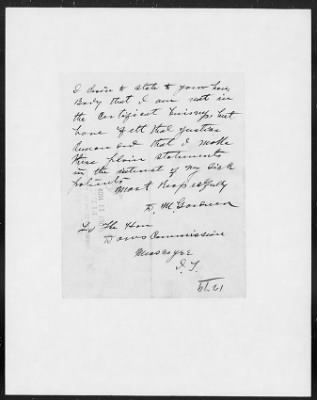 I desire to state to your hon
Body that I am not in
the certificat business but
have felt that justice
demand that I make
these plain statements
in the interest of my sick
patients
Most Respectfully
D. M. Gardner
To The Hon
Dawes Commission
Muscogee
I. T.